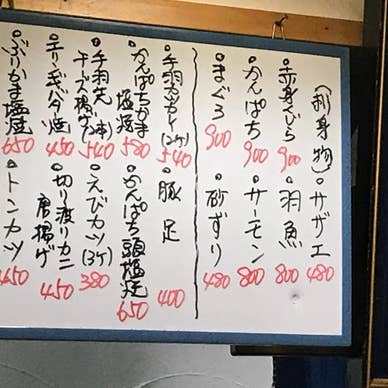 (刺身物)
・サザエ 480
・赤身くじら 900
・羽魚 800
・かんぱち 900
・サーモン 800
・まぐろ 900
・砂ずり 480
・手羽カラアゲ(2ケ) 540
・豚足 400
・かんぱちかま塩焼 580
・かんぱち頭塩焼 650
・手羽先(2本)チーズ揚げ 540
・えびカツ(3ケ) 380
・エリンギバタ焼 450
・切り渡りカニ唐揚げ 450
・ぶりかま塩焼 650
・トンカツ 450